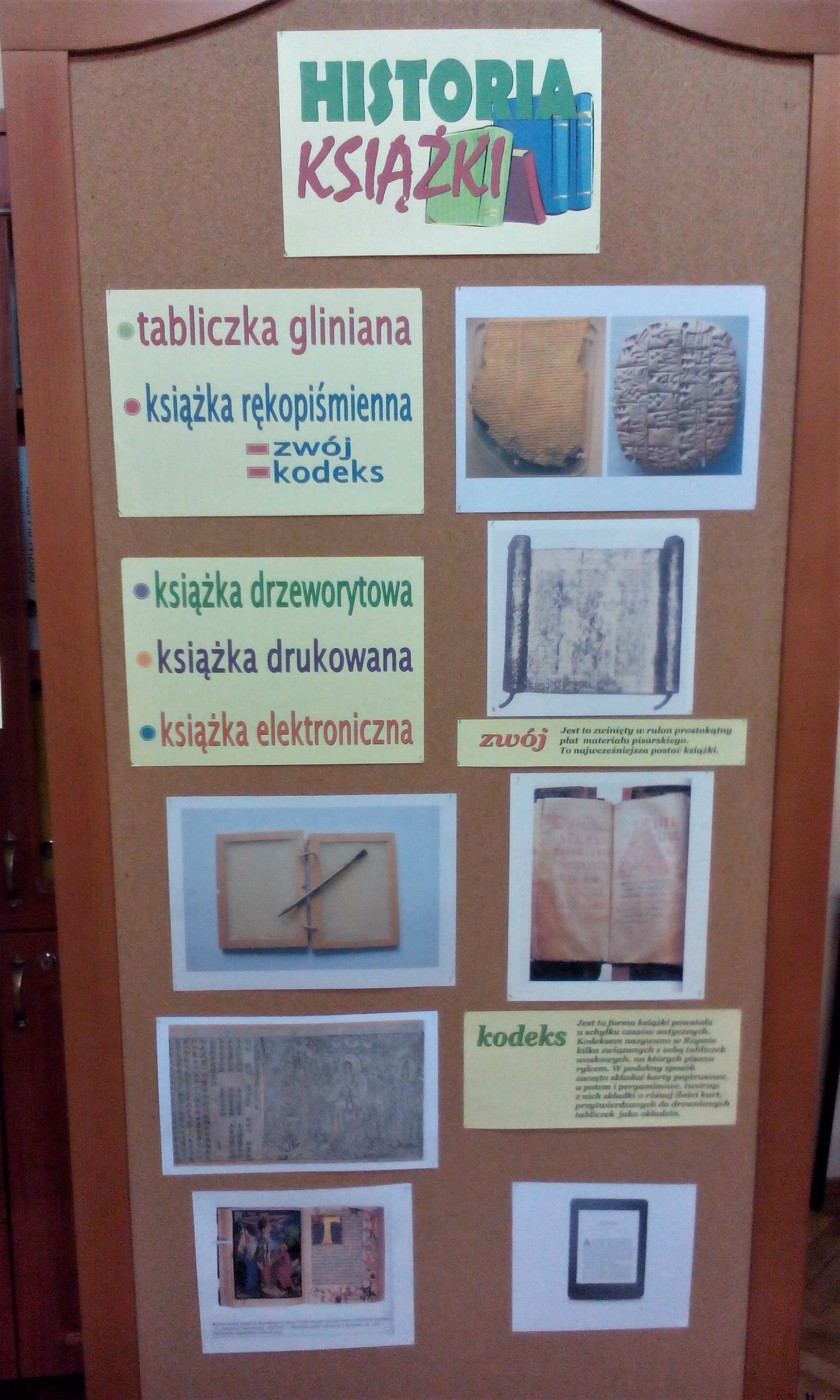 HISTORIA
KSIĄŻKI
tabliczka gliniana
książka rękopiśmienna
zwój
kodeks
książka drzeworytowa
książka drukowana
książka elektroniczna
zwój
Jest to zwinięty w rulon prostokątny
płat materiału pisarskiego.
To najwcześniejsza postać książki.
kodeks
Jest to forma książki powstała
u schyłku czasów antycznych.
Kodeksem nazywano w Rzymie
kilka związanych z sobą tabliczek
woskowych, na których pisano
rylcem. W podobny sposób
zaczęto składać karty papirusowe,
a potem i pergaminowe, tworząc
z nich składki o różnej ilości kart,
przytwierdzanych do drewnianych
tabliczek jako okładzin.